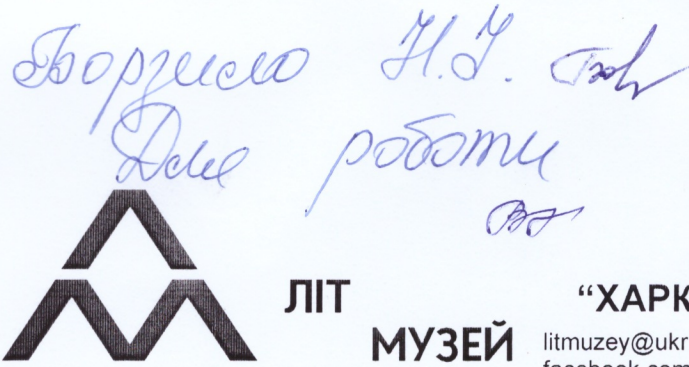 Борзило Н.І.
Для роботи
ЛІТ
МУЗЕЙ
“ХАРК
litmuzey@ukr
facebook.com